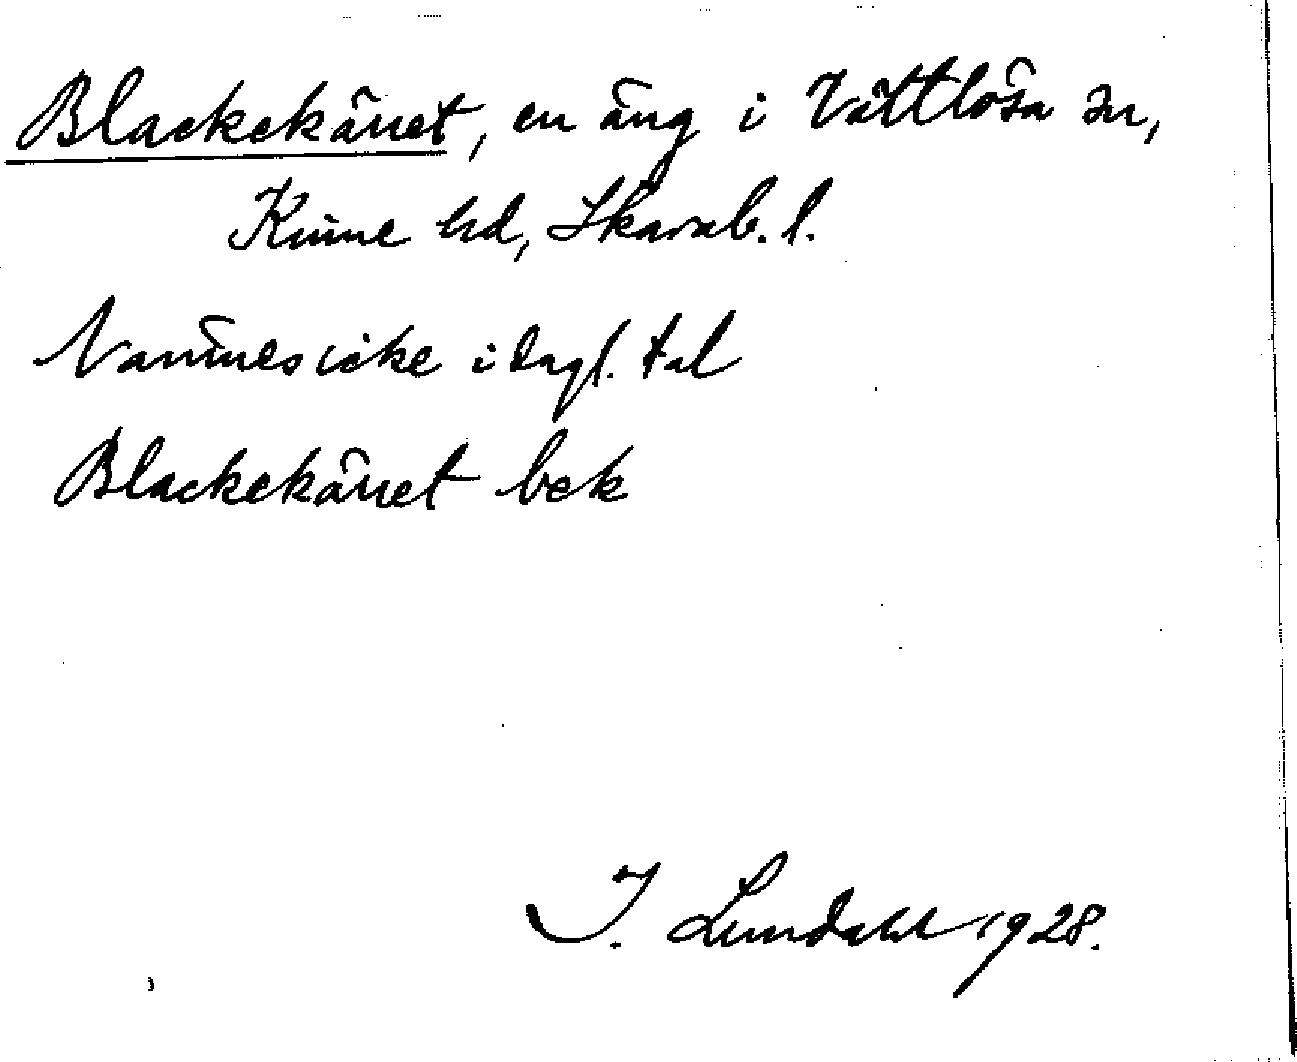 Blackekärret, en äng i Vättlösa sn,
Kinne hd, Skarab. l.
Namnes icke i dagl. tal
Blackekärret bek
I. Lundahl 1928.